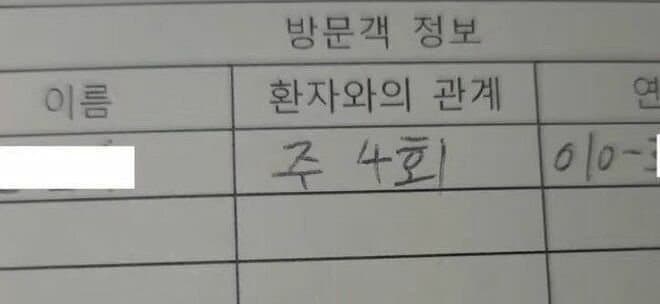 방문객 정보
이름 환자와의 관계 연
주 4회 010-3